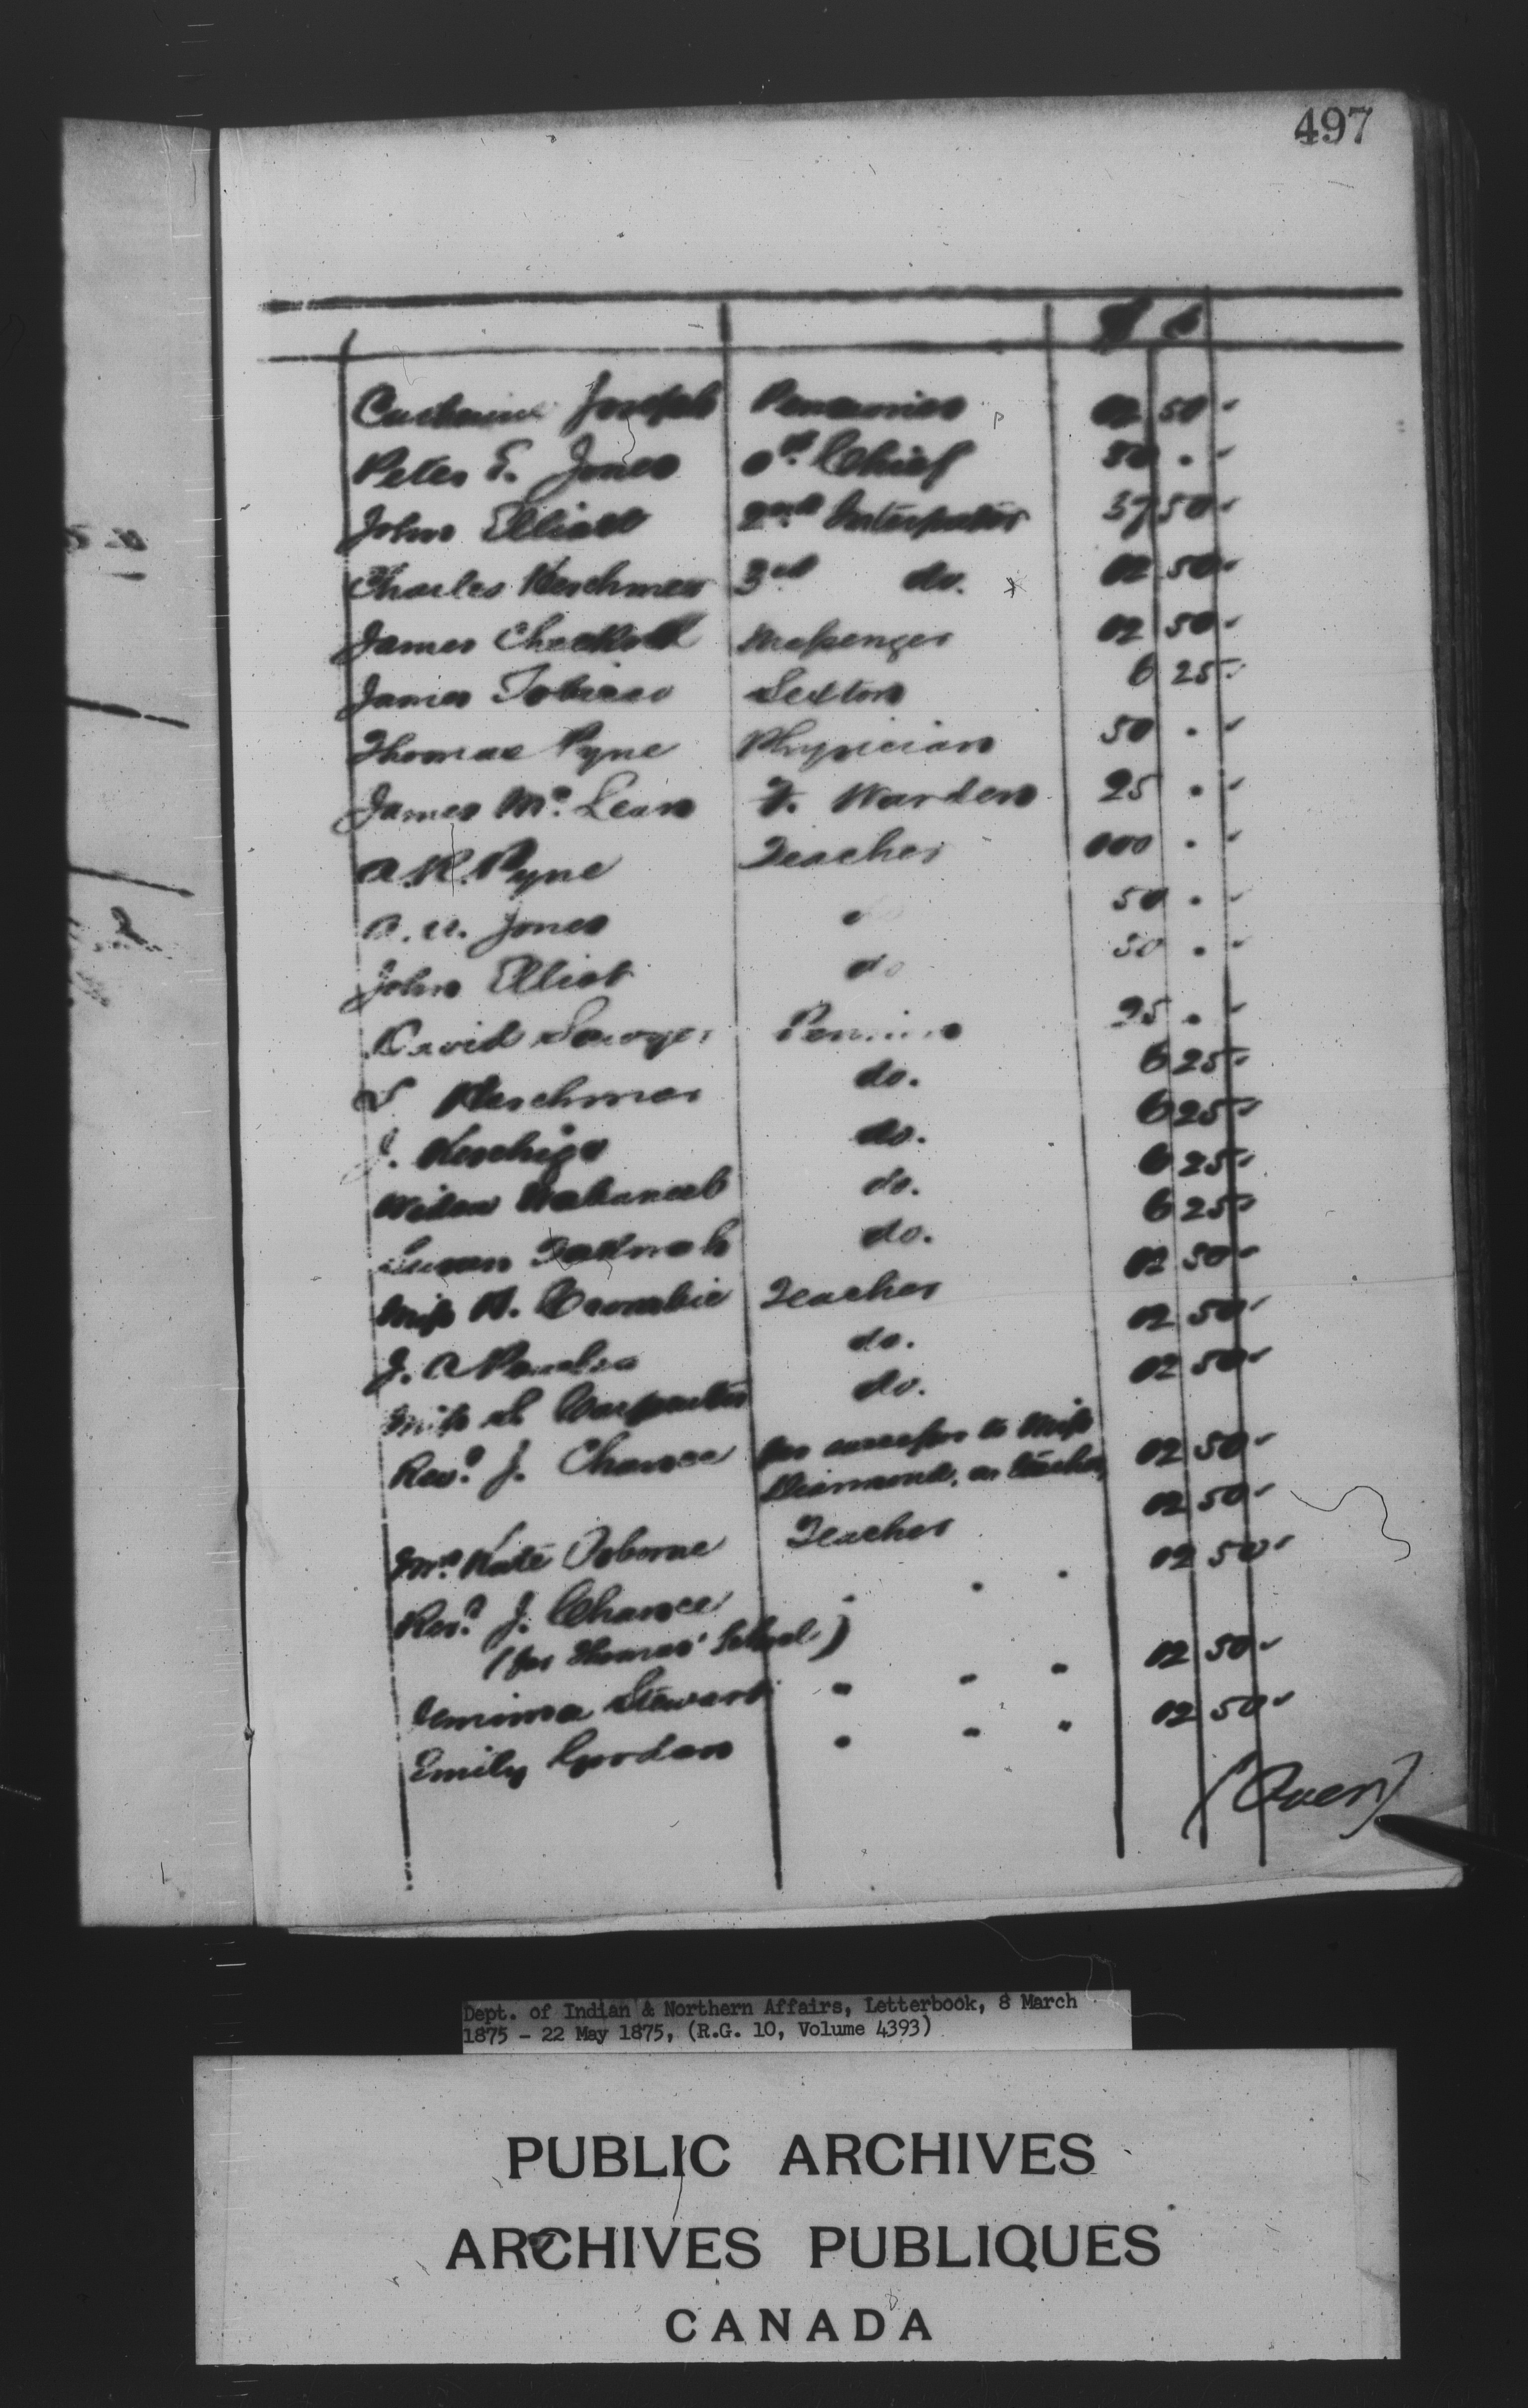 497
$ c
Catharine Joseph Pensioner 12 50
Peter E. Jones Chief 50 .
John Elliott 2nd Interpreter 37 50
Charles Keschmer 3rd do. 12 50
James Chechock Messenger 12 50
James Tobico Sexton 6 25
Thomas Pyne Physician 50 .
James Mc. Lean F. Warden 25 .
A. R. Pyne Teacher 100 .
Jones do 50 .
John Elliot do 50 .
David Sawyer Pensioner 25 .
Keschmer do. 6 25
J. Keschigo do. 6 25
Widow Wahaneeb do. 6 25
Susan do. 6 25
Miss Crombie Teacher 12 50
J. A. do. 12 50
Miss S. Carpenter do. 12 50
Revd. J. Chance for successor to Miss
Diamond, as teacher, 12 50
Mrs. Kate Osborne Teacher 12 50
Revd. J. Chance " " " 12 50
(for Thomas' School)
Jemima Stewart " " " 12 50
Emily Gordon " " " 12 50
(Over)
Dept. of Indian & Northern Affairs, Letterbook, 8 March
1875 - 22 May 1875, (R.G. 10, Volume 4393)
PUBLIC ARCHIVES
ARCHIVES PUBLIQUES
CANADA